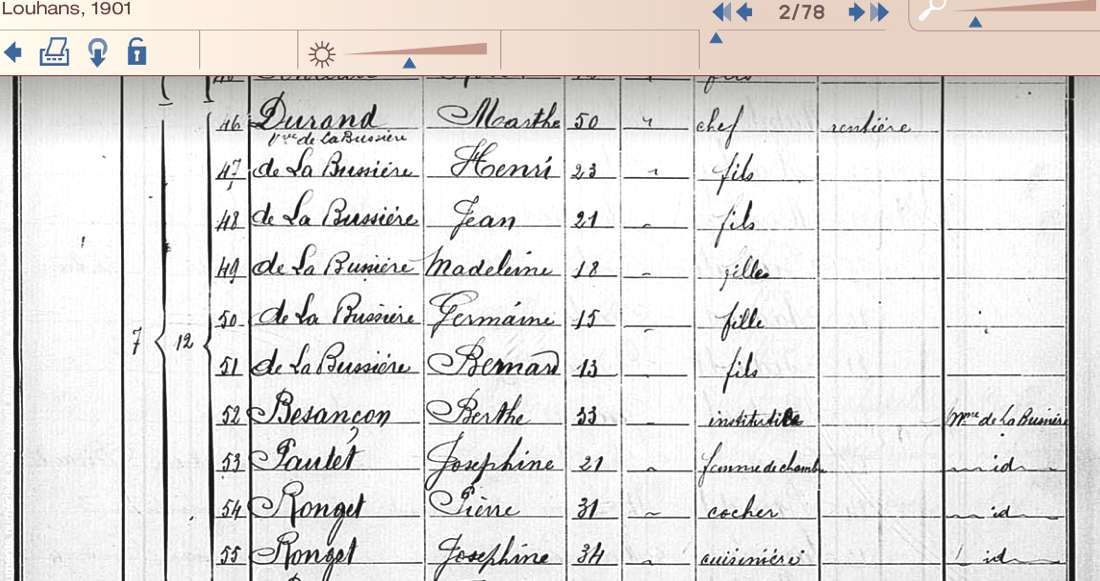 Louhans, 1901
2/78
46 Durand Marthe 50 " chef rentière
Vve de La Bussière
47 de La Bussière Henri 23 " fils
48 de La Bussière Jean 21 " fils
49 de La Bussière Madeleine 18 " filles
50 de La Bussière Germaine 15 " fille
7 12 51 de La Bussière Bernard 13 " fils
52 Besançon Berthe 33 " institutrice Mme de La Bussière
53 Pautet Josephine 21 " femme de chambre id
54 Ronget Pierre 31 " cocher id
55 Ronget Josephine 34 cuisinière id